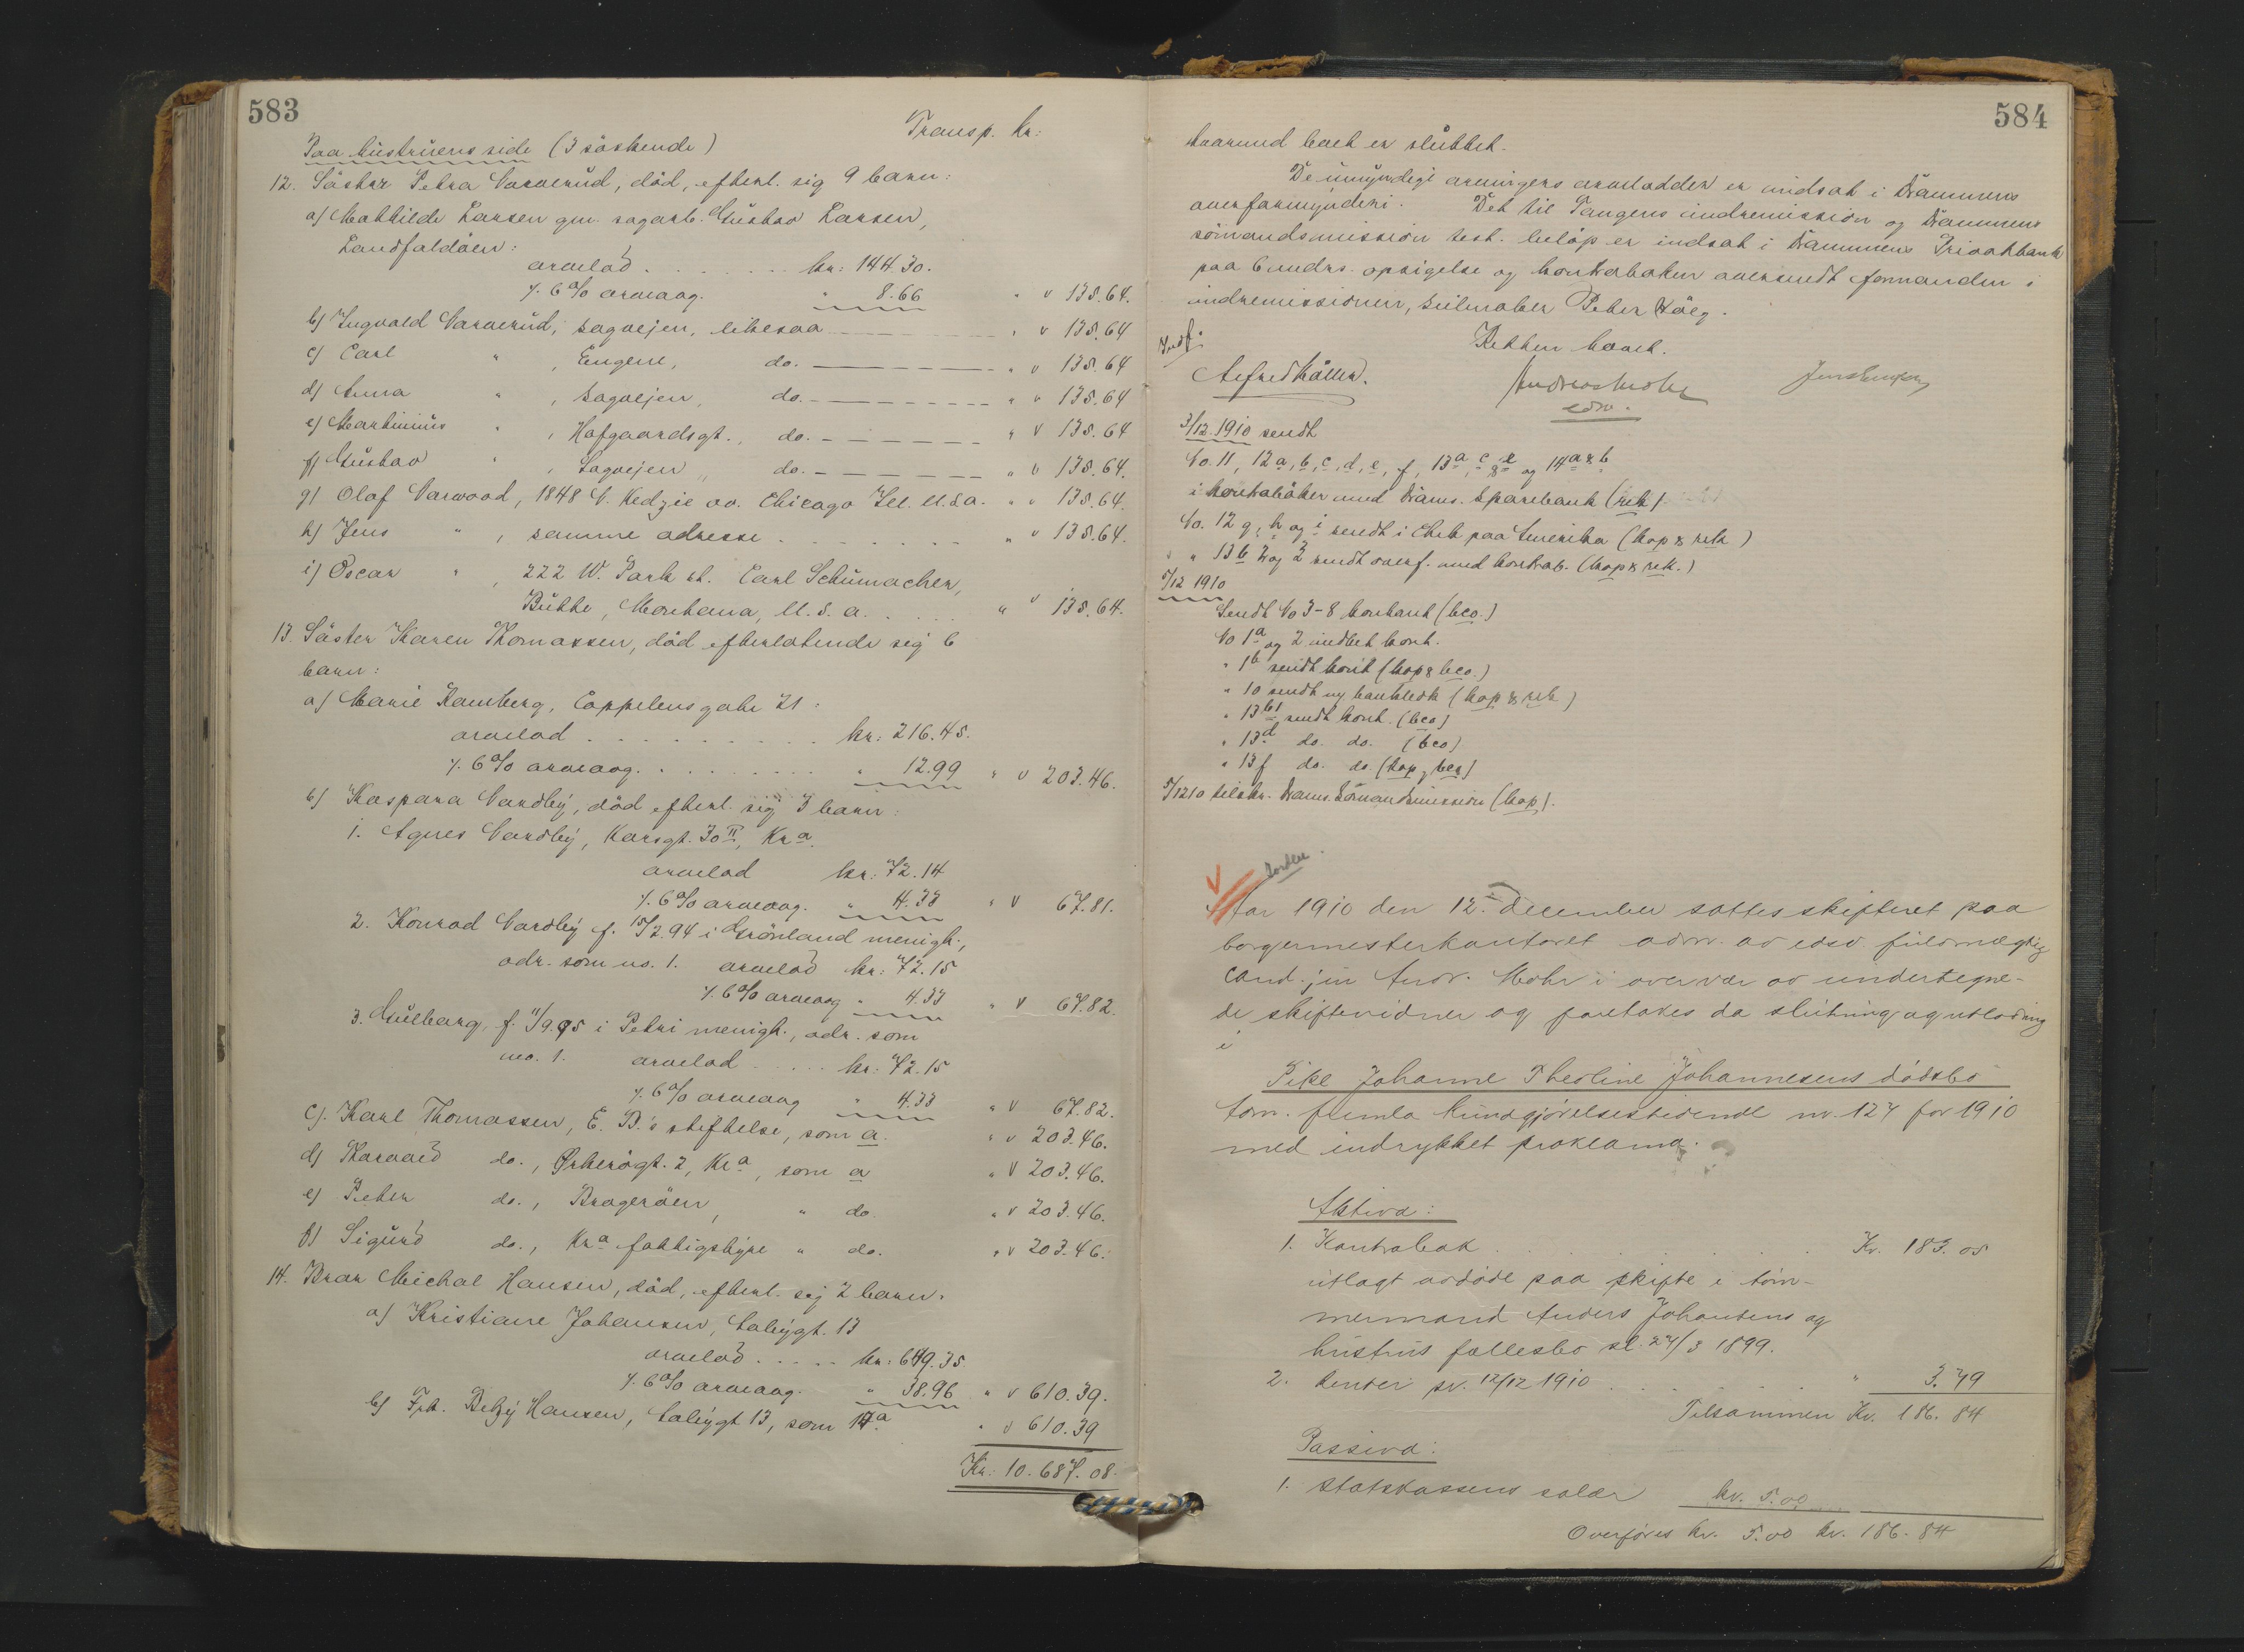 583
Transp. kr:
Paa hustruens side (3 söskende)
12. Söster Petra Varverud, död, efterl. sig 9 barn:
a) Mathilde Larsen gm. sagarb. Gustav Larsen,
Landfaldöen:
arvelod . . . . . . . kr: 144.30.
÷ 6% arveavg. " 8.66 " v 135.64.
b) Ingvald Varverud, Sagvejen, likesaa " v 135.64
c) Carl " , Eugene, do. " v 135.64
d) Anna " , Sagvejen, do. " " 135.64
e) Marthinius " , Hofgaardsgt., do. " v 135.64
f) Gustav " , Sagvejen " do. " v 135.64.
g) Olaf Varwood, 1848 N. Kedzie av. Chicago Ill. U.S.a. " v 135.64.
h) Jens " , samme adresse . . . . . . . " v 135.64.
i) Oscar " , 222 W. Park st. Carl Schumacher,
Butte, Montana, U.S.a. . . . . " v 135.64.
13. Söster Karen Thomassen, död efterlatende sig 6
barn:
a) Marie Ramberg, Cappelens gate 21:
arvelod . . . . . . . . . kr: 216.45.
÷ 6% arveavg. . . . . . . . " 12.99 " v 203.46.
b) Kaspara Vardby, död efterl. sig 3 barn:
1. Agnes Vardby, Karsgt. 30 II, Kra.
arvelod kr: 72.14
÷ 6% arveavg. " 4.33 " v 67.81.
2. Konrad Vardby f. 15/2.94 i Grönland menigh.,
adr. som no. 1. arvelod kr: 72.15
÷ 6% arveavg " 4.33 " v 67.82.
3. Gulborg, f. 11/9.95 i Petri menigh., adr. som
no. 1. arvelod . . . . . kr: 72.15
÷ 6% arveavg " 4.33 " v 67.82.
c). Karl Thomassen, E. B.'s stiftelse, som a. " v 203.46.
d) Thorvald do., Kra, som a " v 203.46.
e) Peter do., Brageröen, " do. " v 203.46.
f) Sigurd do., Kra fattigstyre " do. " v 203.46.
14. Bror Michal Hansen, död, efterl. sig 2 barn.
a) Kristiane Johansen, Tabygt. 13
arvelod . . . . . kr: 649.35.
÷ 6% arveavg. " 38.96 " v 610.39.
b) Frk. Betzy Hansen, Tabygt 13, som 14a. " v 610.39
Kr: 10.687.08.
584
hvorved boet er sluttet.
De umyndige arvingers arvelodder er indsat i Drammens
overformynderi. Det til Tangens indremission og Drammens
sömandsmission test. belöp er indsat i Drammens Privatbank
paa 6 mdrs. opsigelse og kontraboken oversendt formanden i
indremissionen, seilmaker Peter Höeg.
Retten hævet.
Alfred Möller. Andreas Mohr
edsv.
3/12.1910 sendt
No. 11, 12 a, b, c, d, e, f, 13 a, c & e og 14 a & b
i kontraböker med Drams. Sparebank (rek)
No. 12 g, h og i sendt i Chek paa Amerika (kop & rek)
" " 13 b 2 og 3 sendt overf. med kontrab. (kop & rek.)
5/12 1910
Sendt No 3-8 kontant (bco.)
No 1a og 2 indbet kont.
" 1b sendt kont (kop & bco.)
" 10 sendt ny (kop & rek)
" 13 b1 sendt kont. (bco)
" 13 d do. do. (bco)
" 13 f do. do (kop, bco)
5/12 10 tilskr. Drams. Sömandsmission (kop).
Aar 1910 den 12. december sattes skifteret paa
borgermesterkontoret adm. av edsv. fuldmægtig
cand. jur Andr. Mohr i overvær av undertegne-
de skiftevidner og foretokes da slutning og utlodning
i
Pike Johanne Theoline Johannesens dödsbo
som. fremla Kundgjörelsestidende nr. 127 for 1910
med indrykket proklama.
Aktiva:
1. Kontrabok . . . . . . . . . Kr. 183.05
utlagt avdöde paa skifte i töm-
mermand Anders Johansens og
hustrus fællesbo sl. 27/3 1899.
2. Renter pr. 12/12 1910 . . . . . " 3.79
Tilsammen Kr. 186.84
Passiva:
1. Statskassens salær kr. 5.00
Overföres kr. 5.00 kr. 186.84